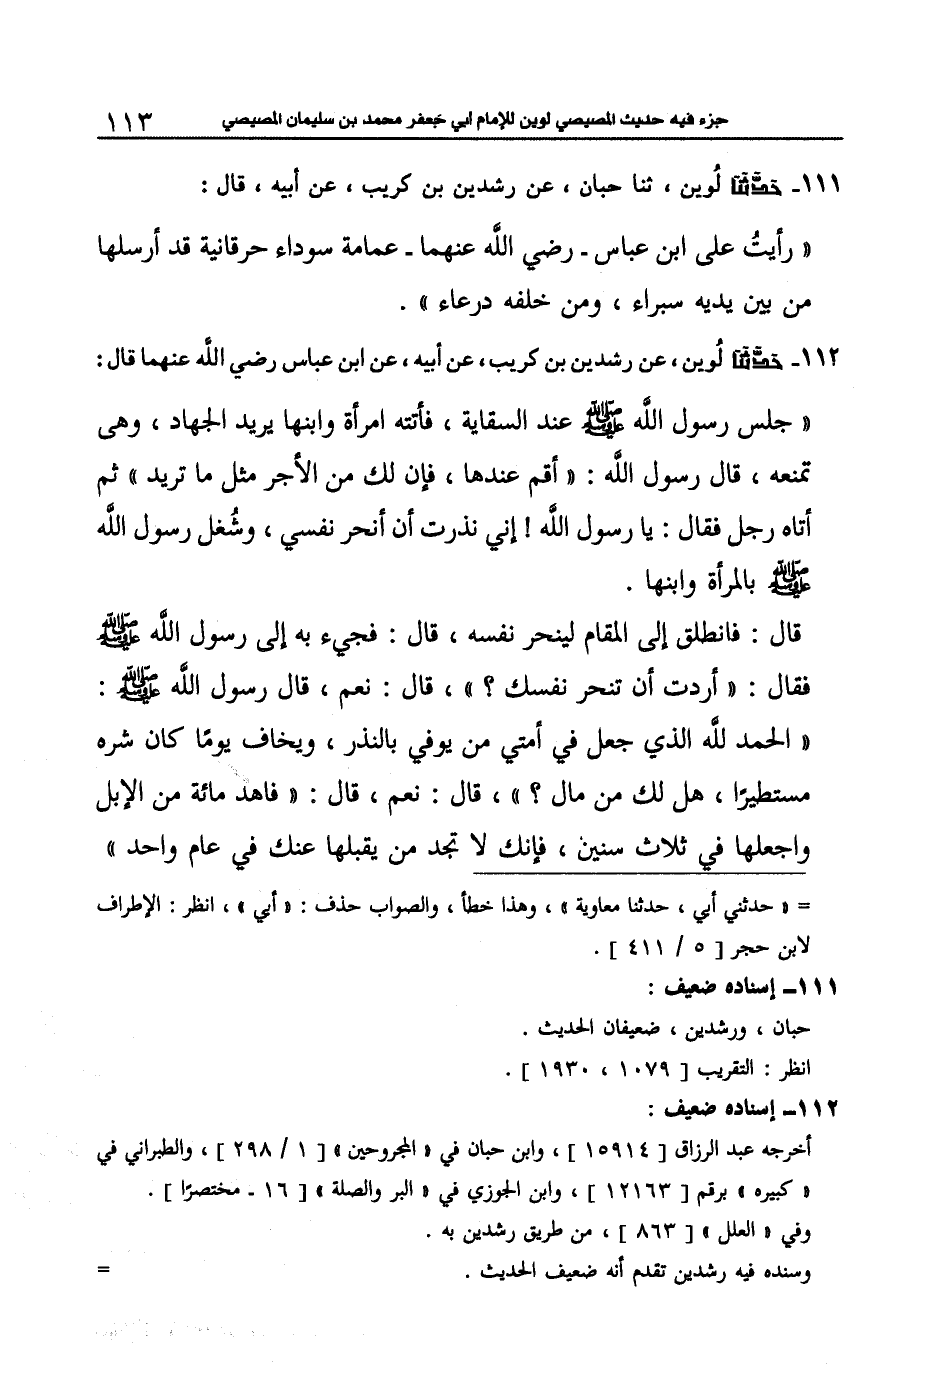 جزء فيه حديث المصيصي لوين للإمام أبي جعفر محمد بن سليمان المصيصي ١١٣
١١١ـ حدثنا لُوين ، ثنا حبان ، عن رشدين بن كريب ، عن أبيه ، قال :
« رأيتُ على ابن عباس ـ رضي اللَّه عنهما ـ عمامة سوداء حرقانية قد أرسلها
من بين يديه سبراء ، ومن خلفه درعاء » .
١١٢ـ حدثنا لُوين ، عن رشدين بن كريب ، عن أبيه ، عن ابن عباس رضي اللَّه عنهما قال :
« جلس رسول اللَّه ﷺ عند السقاية ، فأتته امرأة وابنها يريد الجهاد ، وهى
تمنعه ، قال رسول اللَّه : « أقم عندها ، فإن لك من الأجر مثل ما تريد » ثم
أتاه رجل فقال : يا رسول اللَّه ! إني نذرت أن أنحر نفسي ، وشُغل رسول اللَّه
ﷺ بالمرأة وابنها .
قال : فانطلق إلى المقام لينحر نفسه ، قال : فجيء به إلى رسول اللَّه ﷺ
فقال : « أردت أن تنحر نفسك ؟ » ، قال : نعم ، قال رسول اللَّه ﷺ :
« الحمد للَّه الذي جعل في أمتي من يوفي بالنذر ، ويخاف يومًا كان شره
مستطيرًا ، هل لك من مال ؟ » ، قال : نعم ، قال : « فاهد مائة من الإبل
واجعلها في ثلاث سنين ، فإنك لا تجد من يقبلها عنك في عام واحد »
= « حدثني أبي ، حدثنا معاوية » ، وهذا خطأ ، والصواب حذف : « أبي » ، انظر : الإطراف
لابن حجر [ ٥ / ٤١١ ] .
١١١ـ إسناده ضعيف :
حبان ، ورشدين ، ضعيفان الحديث .
انظر : التقريب [ ١٠٧٩ ، ١٩٣٠ ] .
١١٢ـ إسناده ضعيف :
أخرجه عبد الرزاق [ ١٥٩١٤ ] ، وابن حبان في « المجروحين » [ ١ / ٢٩٨ ] ، والطبراني في
« كبيره » برقم [ ١٢١٦٣ ] ، وابن الجوزي في « البر والصلة » [ ١٦ ـ مختصرًا ] .
وفي « العلل » [ ٨٦٣ ] ، من طريق رشدين به .
وسنده فيه رشدين تقدم أنه ضعيف الحديث . =